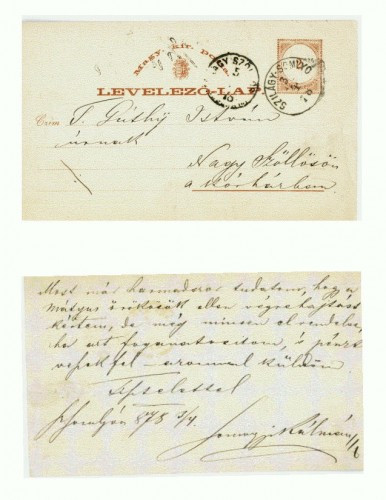 Magy. kir. posta
LEVELEZŐ-LAP
NAGY SZŐL
5
10
SZILÁGY-SOMLYÓ
Czím T. Gúthy István
úrnak
Nagy Szőllősön
a kórházban
Most már harmadszor tudatom, hogy a
Mátyus örökösök ellen végrehajtást
kértem, de még nincsen elrendelve,
ha azt foganatosítom, s pénzt
veszek fel – azonnal küldöm.
Tisztelettel
Somlyón 878 3/4.
Somogyi Kálmán